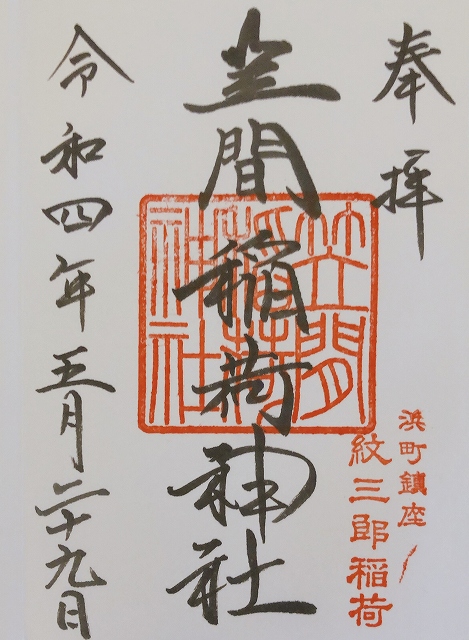 奉拝
浜町鎮座
紋三郎稲荷
笠間稲荷神社
笠間稲荷神社
令和四年五月二十九日